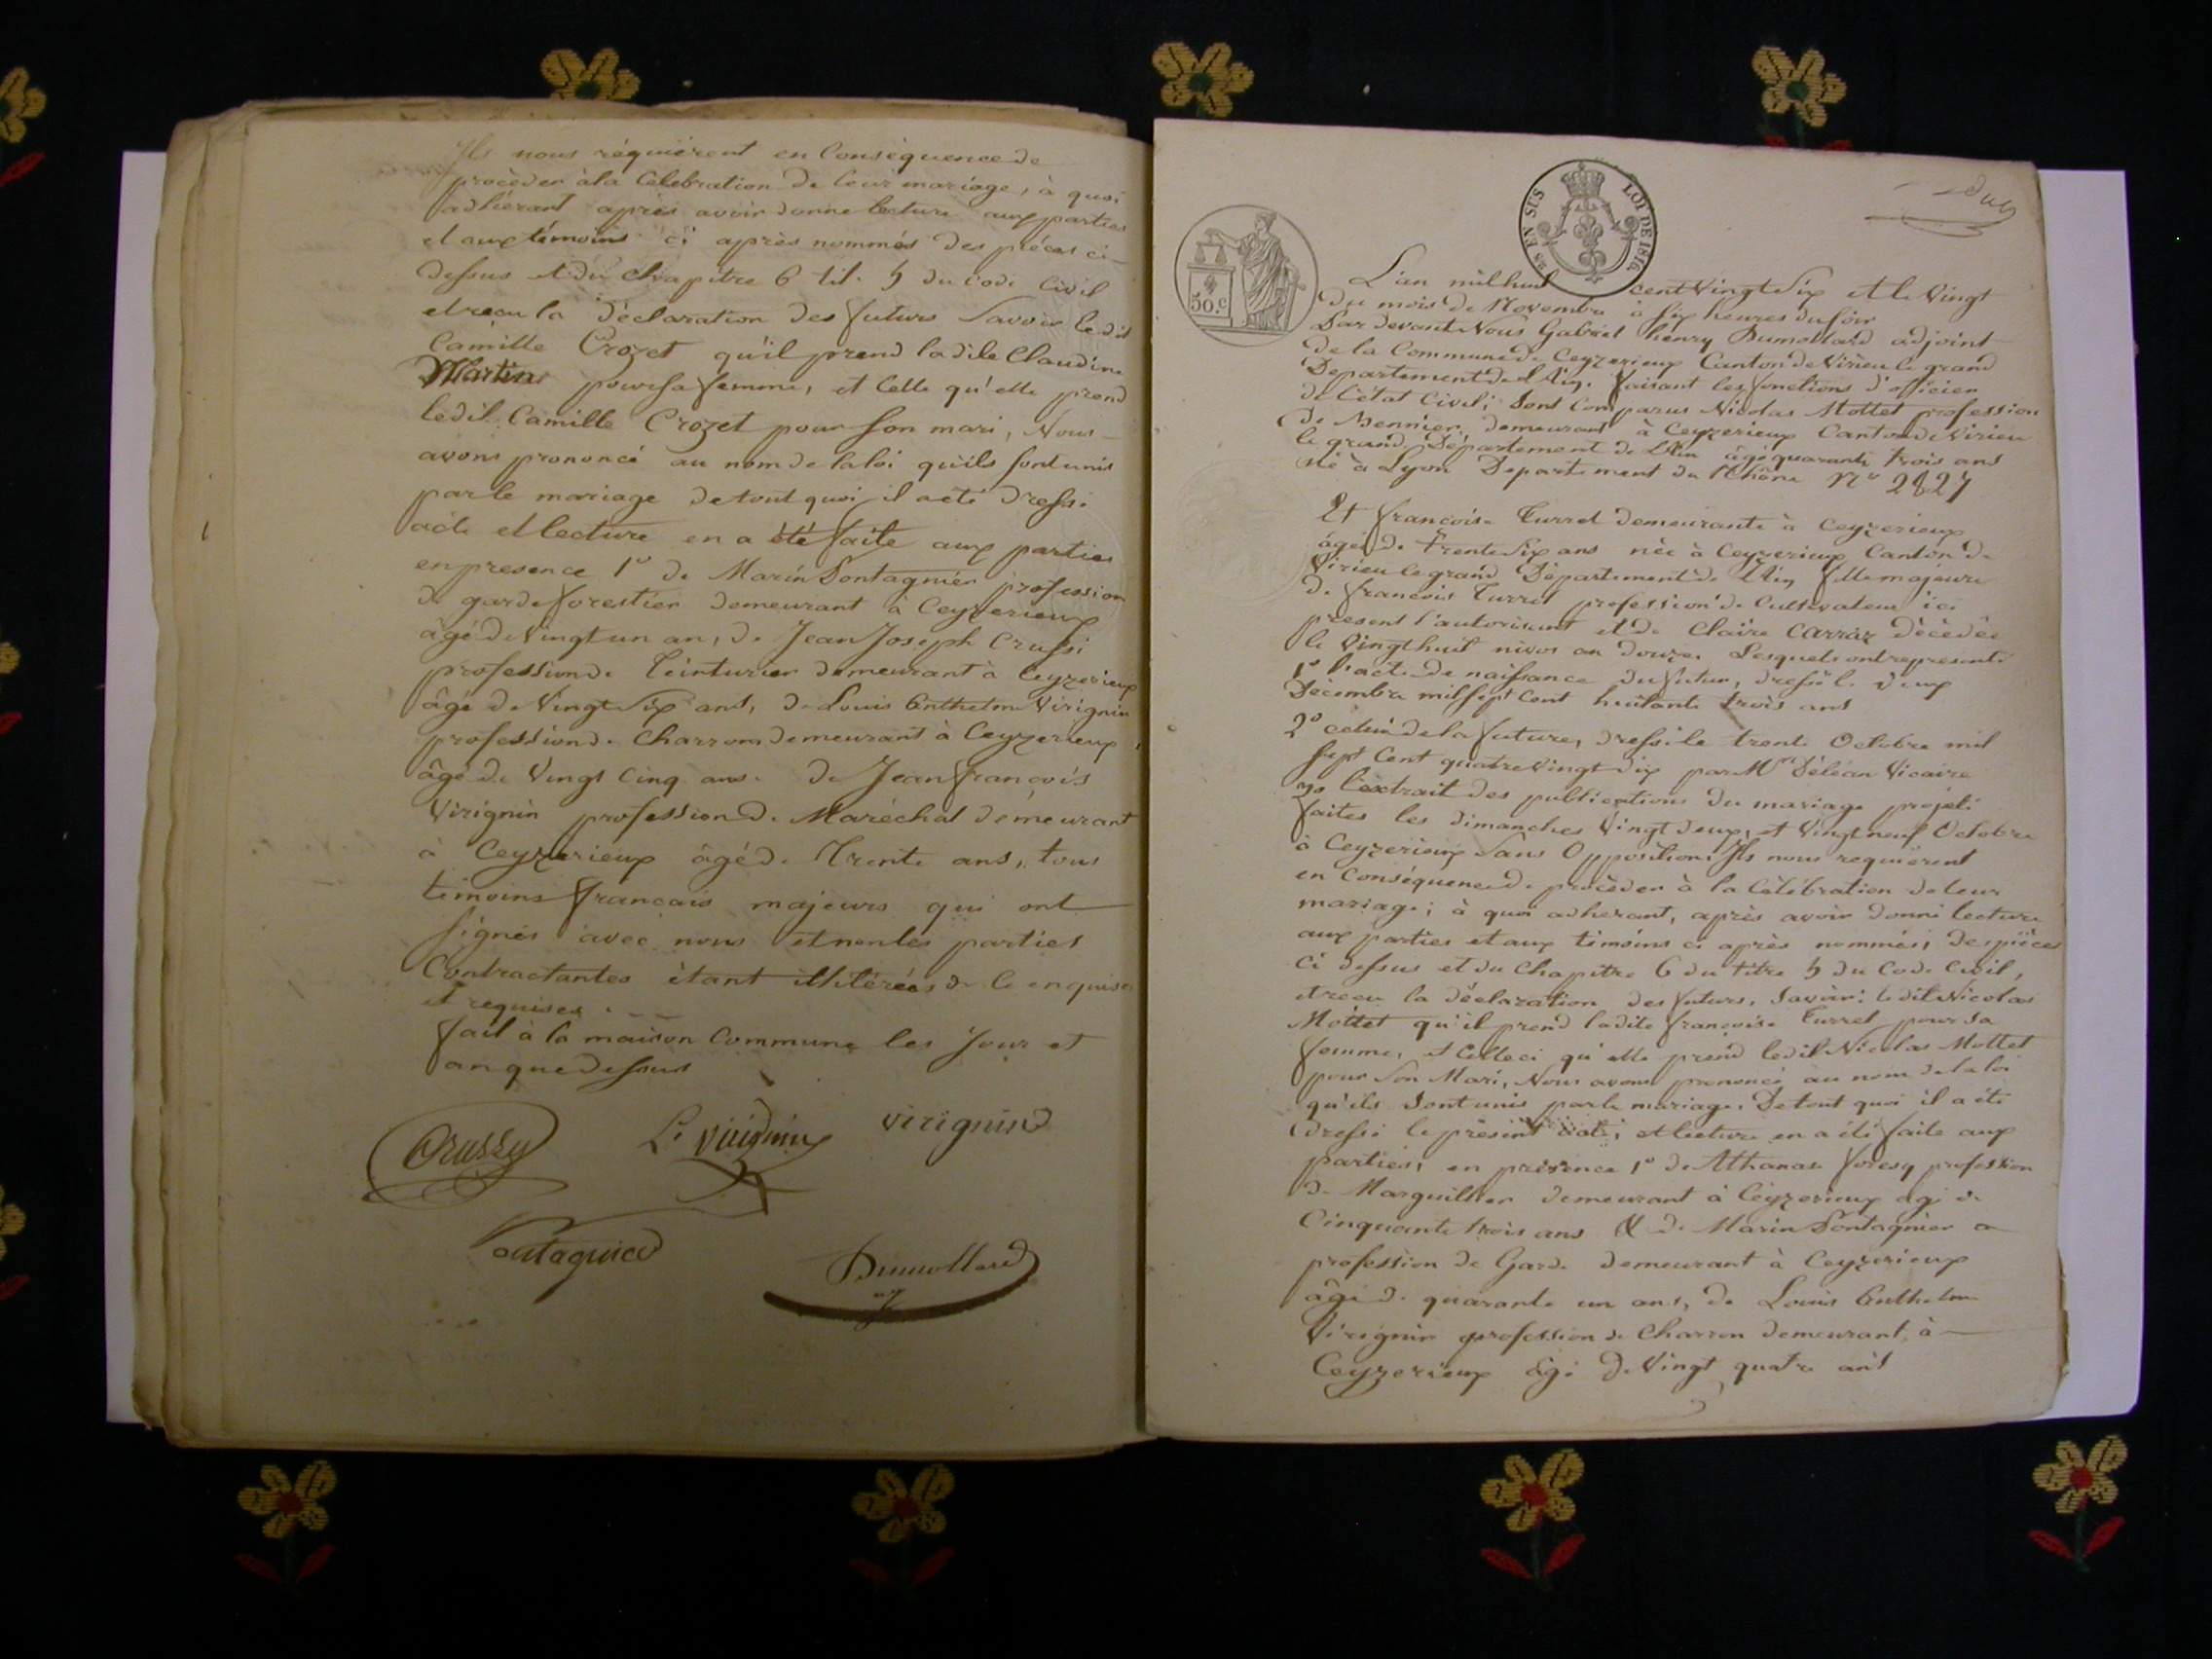 Ils nous réquièrent en Conséquence de
procèder à la Celebration de leur mariage, à quoi
adhérant après avoir donné lecture aux parties
et aux témoins ci après nommés des pièces ci-
dessus et du Chapitre 6 tit. 5 du Code Civil
et reçu la déclaration des futurs savoir ledit
Camille Crozet qu'il prend ladite Claudine
Martin pour sa femme, et Celle qu'elle prend
ledit Camille Crozet pour son mari, Nous
avons prononcé au nom de la loi qu'ils sont unis
par le mariage de tout quoi il a été dressé
acte et lecture en a été faite aux parties
en presence 1o de Marin Pontagnier profession
de garde forestier demeurant à Ceyzerieux
âgé de Vingt un an, de Jean Joseph Crussi
profession de Teinturier demeurant à Ceyzerieux
âgé de Vingt Six ans, de Louis Anthelme Virignin
profession de Charron demeurant à Ceyzerieux,
âgé de Vingt Cinq ans. de Jean françois
Virignin profession de Maréchal demeurant
à Ceyzerieux âgé de Trente ans, tous
témoins français majeurs qui ont
signés avec nous et non les parties
Contractantes étant illitérées de ce enquises
et requises.
fait à la maison Commune les Jour et
an que dessus
Crussy L. Virignin Virignin
Pontagnier Dumollard
EN SUS LOI DE 1816.
50.c
L'an mil huit cent Vingt Six et le Vingt
du mois de Novembre à six heures du soir
Par devant Nous Gabriel henry Dumollard adjoint
de la Commune de Ceyzerieux Canton de Virieu le grand
Département de l'Ain. faisant les fonctions d'officier
de l'état Civil; Sont Comparus Nicolas Mottet profession
de demeurant à Ceyzerieux Canton de Virieu
le grand Département de l'Ain âgé quarante trois ans
né à Lyon Departement du Rhône No 2827
Et françoise Turrel demeurante à Ceyzerieux
âgée de trente Six ans née à Ceyzerieux Canton de
Virieu le grand Département de l'Ain fille majeure
de françois Turrel profession de Cultivateur ici
présent l'autorisant et de Claire Carraz décèdée
le Vingt huit nivos an douze. Lesquels ont representé
1o l'acte de naissance du futur, dressé le deux
Décembre mil sept Cent huitante trois ans
2o celui de la future, dressé le trente Octobre mil
sept Cent quatre Vingt dix par Mr Déléan Vicaire
3o l'extrait des publications du mariage projeté
faites les dimanches Vingt deux, et Vingt neuf Octobre
à Ceyzerieux Sans Opposition. Ils nous requièrent
en Conséquence de procèder à la Célébration de leur
mariage; à quoi adherant, après avoir donné lecture
aux parties et aux témoins ci après nommés; des pièces
ci dessus et du Chapitre 6 du titre 5 du Code Civil,
et reçu la déclaration des futurs, savoir: ledit Nicolas
Mottet qu'il prend ladite françoise Turrel pour sa
femme, et Celle ci qu'elle prend ledit Nicolas Mottet
pour Son Mari, Nous avons prononcé au nom de la loi
qu'ils sont unis par le mariage. De tout quoi il a été
dressé le présent acte; et lecture en a été faite aux
parties, en présence 1o de Athanase profession
de Marguillier demeurant à Ceyzerieux âgé de
Cinquante trois ans & de Marin Pontagnier
profession de Garde demeurant à Ceyzerieux
âgé de quarante un ans, de Louis Anthelme
Virignin profession de Charron demeurant à
Ceyzerieux âgé de Vingt quatre ans